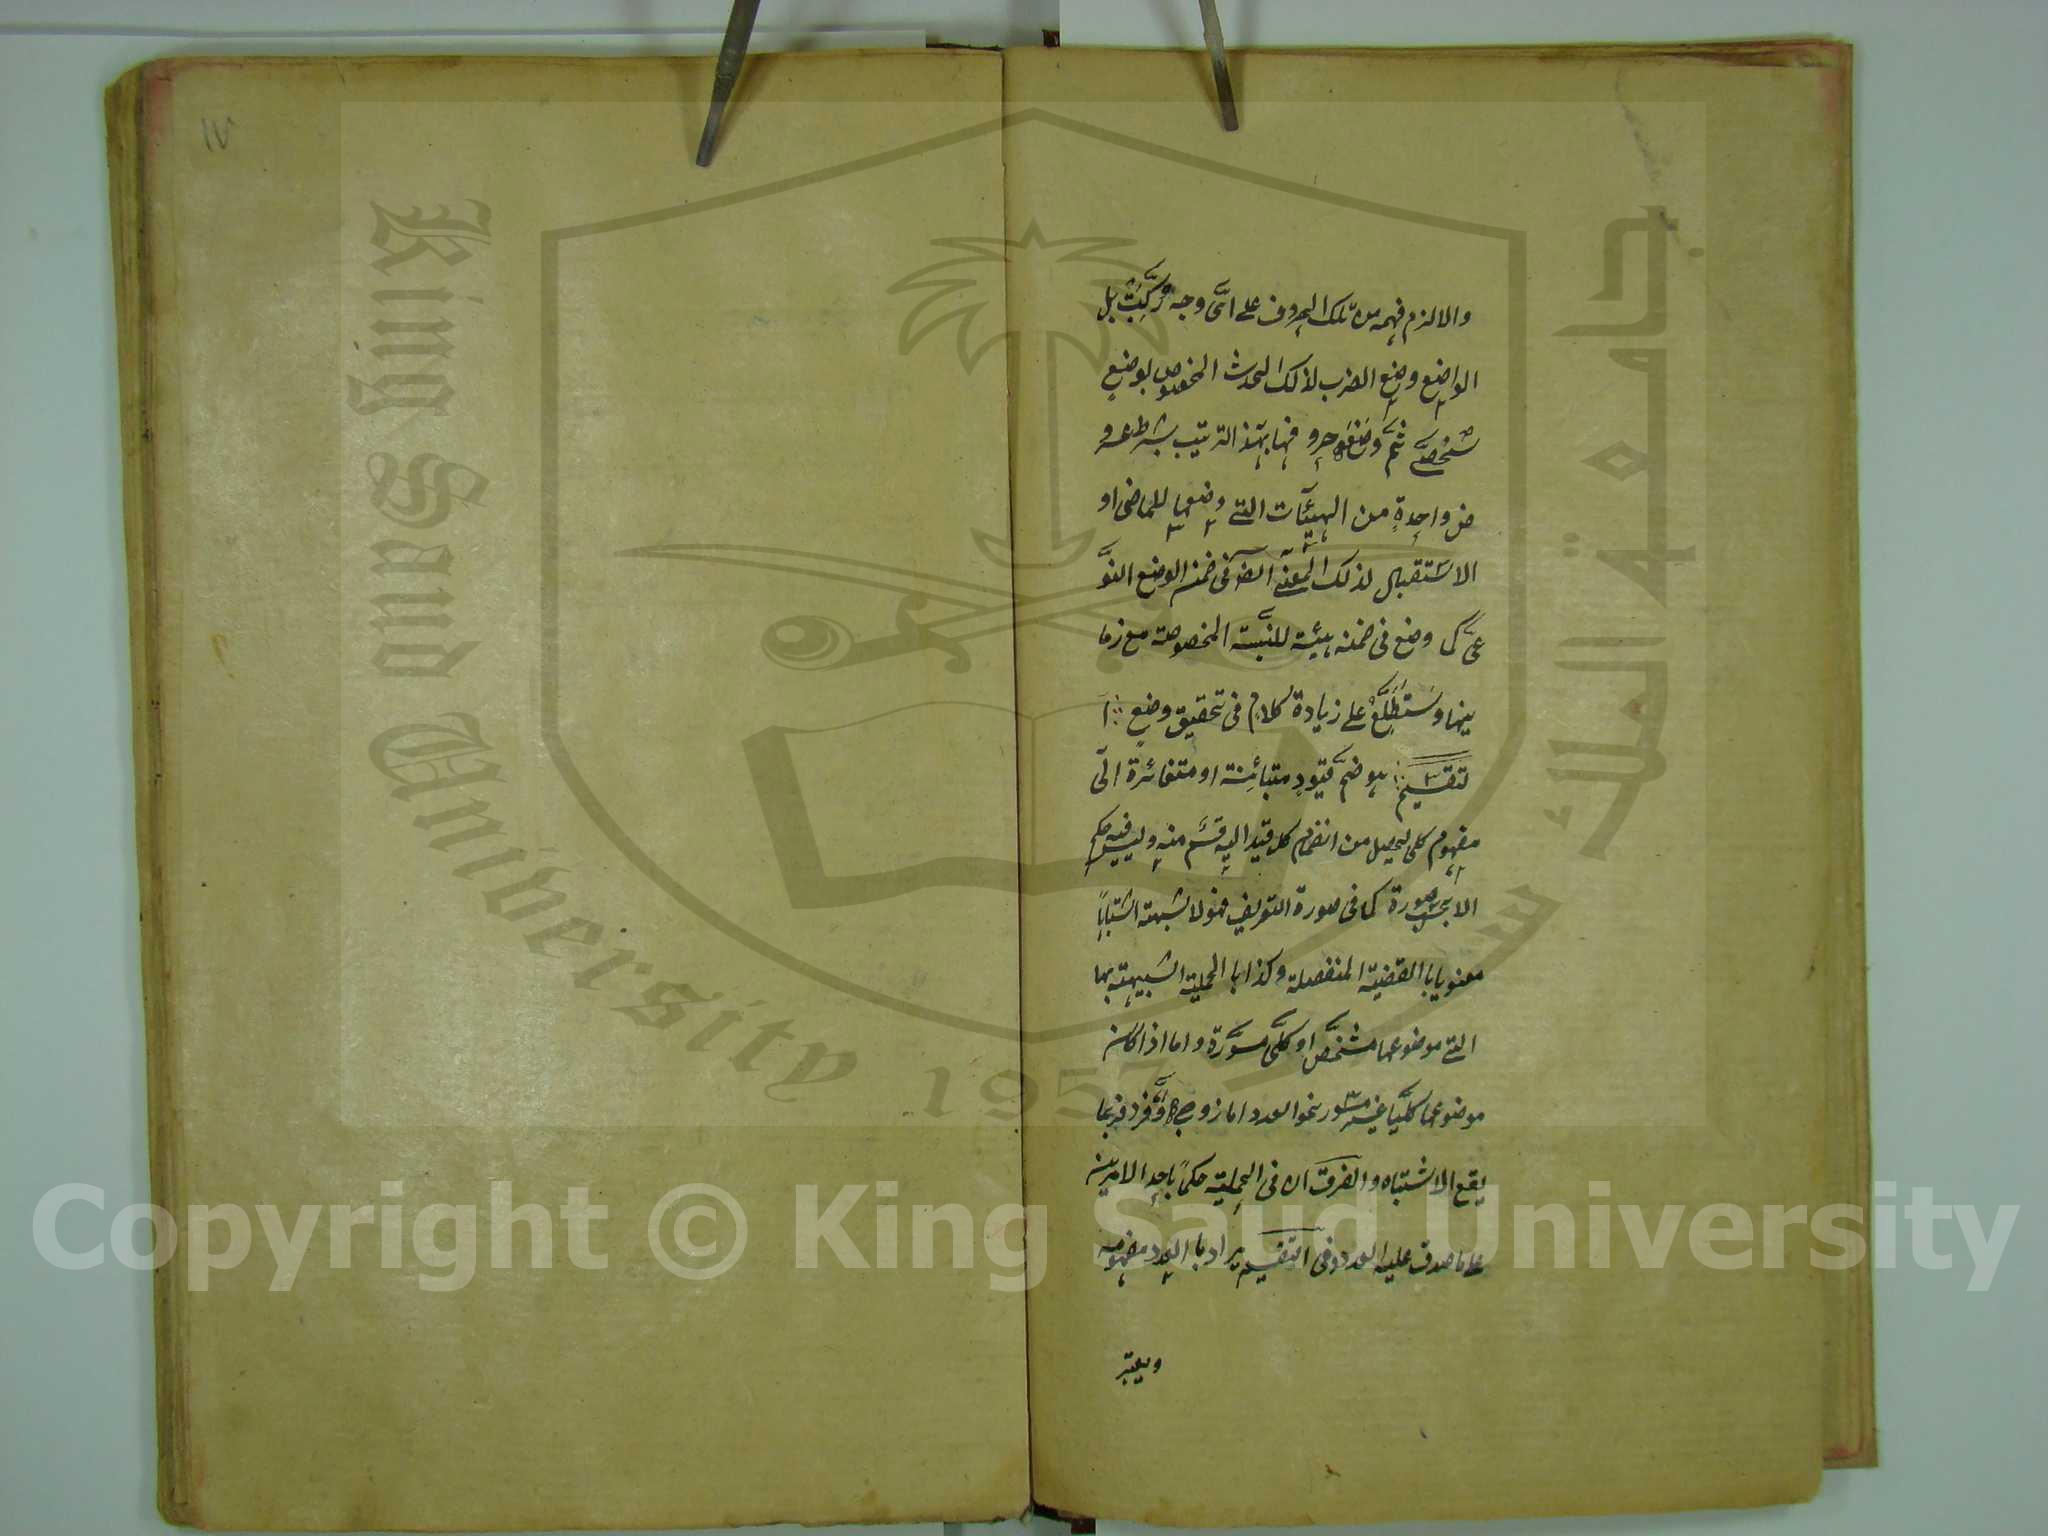 والا لزم فهمه من تلك الحروف على اىّ وجه رُكِّبَت بل
الواضع وضع الضرب لذلك الحدث المخصوص بوضعٍ
شخصىّ ثمّ وضع حروفها بهذا الترتيب بشرط عرو
ض واحدةٍ من الهيئآت التى وضعها للماضى او
الاستقبال لذلك المعنى ايضا فى ضمن الوضع النّو
عىّ كما وضع فى ضمنه هيئته للنّسبة المخصوصة مع زما
نها وستطّلع على زيادة كلام فى تحقيق وضعٍ
تقسيم هو ضمّ قيودٍ متبائنة او متغائرة الى
مفهوم كلى ليحصل من انضمام كل قيد اليه قسم منه وليس فيه حكم
الا بحسب صورة كما فى صورة التعريف فهو لا يشبه اشتباهًا
معنويا با القضية المنفصلة وكذا با الحملية الشبيهة بها
التى موضوعها مشخّص او كلّى مسوّرة و اما اذا كان
موضوعها كلّيّا غير مسوّر نحو العدد اما زوج او فرد فربما
يقع الاشتباه والفرق ان فى الحملية حكمًا باحد الامرين
على ما صدق عليه العدد وفى التقسيم يراد با العدد مفهومه
ويعتبر
١٧
جامعة الملك سعود
King Saud University
1957
Copyright © King Saud University